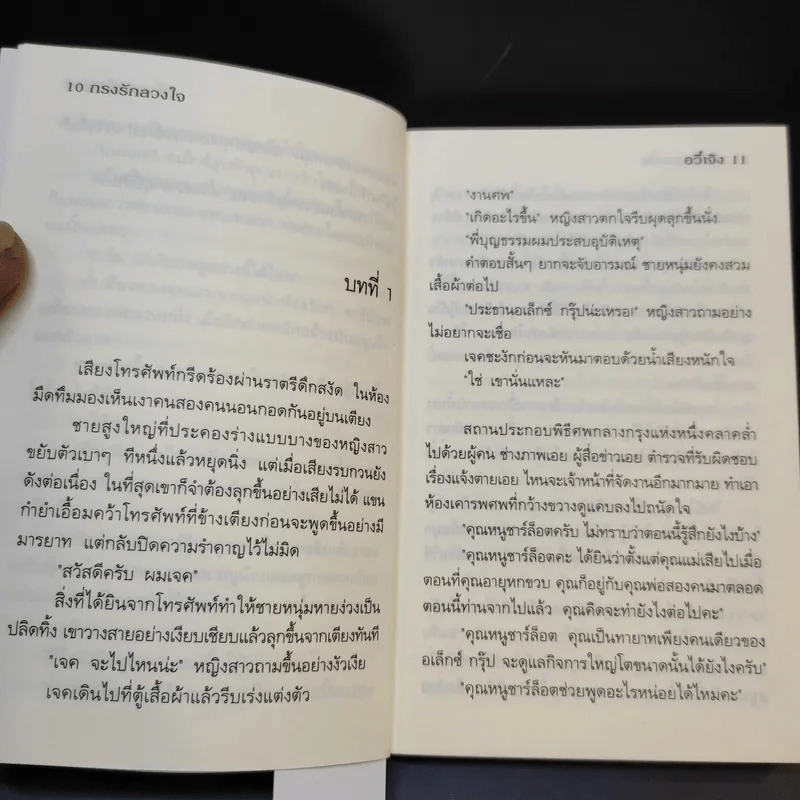 10 กรงรักลวงใจ
บทที่ 1
เสียงโทรศัพท์กรีดร้องผ่านราตรีดึกสงัด ในห้อง
มืดทึมมองเห็นเงาคนสองคนนอนกอดกันอยู่บนเตียง
ชายสูงใหญ่ที่ประคองร่างแบบบางของหญิงสาว
ขยับตัวเบาๆ ทีหนึ่งแล้วหยุดนิ่ง แต่เมื่อเสียงรบกวนยัง
ดังต่อเนื่อง ในที่สุดเขาก็จำต้องลุกขึ้นอย่างเสียไม่ได้ แขน
กำยำเอื้อมคว้าโทรศัพท์ที่ข้างเตียงก่อนจะพูดขึ้นอย่างมี
มารยาท แต่กลับปิดความรำคาญไว้ไม่มิด
"สวัสดีครับ ผมเจค"
สิ่งที่ได้ยินจากโทรศัพท์ทำให้ชายหนุ่มหายง่วงเป็น
ปลิดทิ้ง เขาวางสายอย่างเงียบเชียบแล้วลุกขึ้นจากเตียงทันที
"เจค จะไปไหนน่ะ" หญิงสาวถามขึ้นอย่างงัวเงีย
เจคเดินไปที่ตู้เสื้อผ้าแล้วรีบเร่งแต่งตัว
อวี๋เจิง 11
"งานศพ"
"เกิดอะไรขึ้น" หญิงสาวตกใจรีบผุดลุกขึ้นนั่ง
"พี่บุญธรรมผมประสบอุบัติเหตุ"
คำตอบสั้นๆ ยากจะจับอารมณ์ ชายหนุ่มยังคงสวม
เสื้อผ้าต่อไป
"ประธานอเล็กซ์ กรุ๊ปน่ะเหรอ!" หญิงสาวถามอย่าง
ไม่อยากจะเชื่อ
เจคชะงักก่อนจะหันมาตอบด้วยน้ำเสียงหนักใจ
"ใช่ เขานั่นแหละ"
สถานประกอบพิธีศพกลางกรุงแห่งหนึ่งคลาคล่ำ
ไปด้วยผู้คน ช่างภาพเอย ผู้สื่อข่าวเอย ตำรวจที่รับผิดชอบ
เรื่องแจ้งตายเอย ไหนจะเจ้าหน้าที่จัดงานอีกมากมาย ทำเอา
ห้องเคารพศพที่กว้างขวางดูแคบลงไปถนัดใจ
"คุณหนูชาร์ล็อตครับ ไม่ทราบว่าตอนนี้รู้สึกยังไงบ้าง"
"คุณหนูชาร์ล็อตคะ ได้ยินว่าตั้งแต่คุณแม่เสียไปเมื่อ
ตอนที่คุณอายุหกขวบ คุณก็อยู่กับคุณพ่อสองคนมาตลอด
ตอนนี้ท่านจากไปแล้ว คุณคิดจะทำยังไงต่อไปคะ"
"คุณหนูชาร์ล็อต คุณเป็นทายาทเพียงคนเดียวของ
อเล็กซ์ กรุ๊ป จะดูแลกิจการใหญ่โตขนาดนั้นได้ยังไงครับ"
"คุณหนูชาร์ล็อตช่วยพูดอะไรหน่อยได้ไหมคะ"